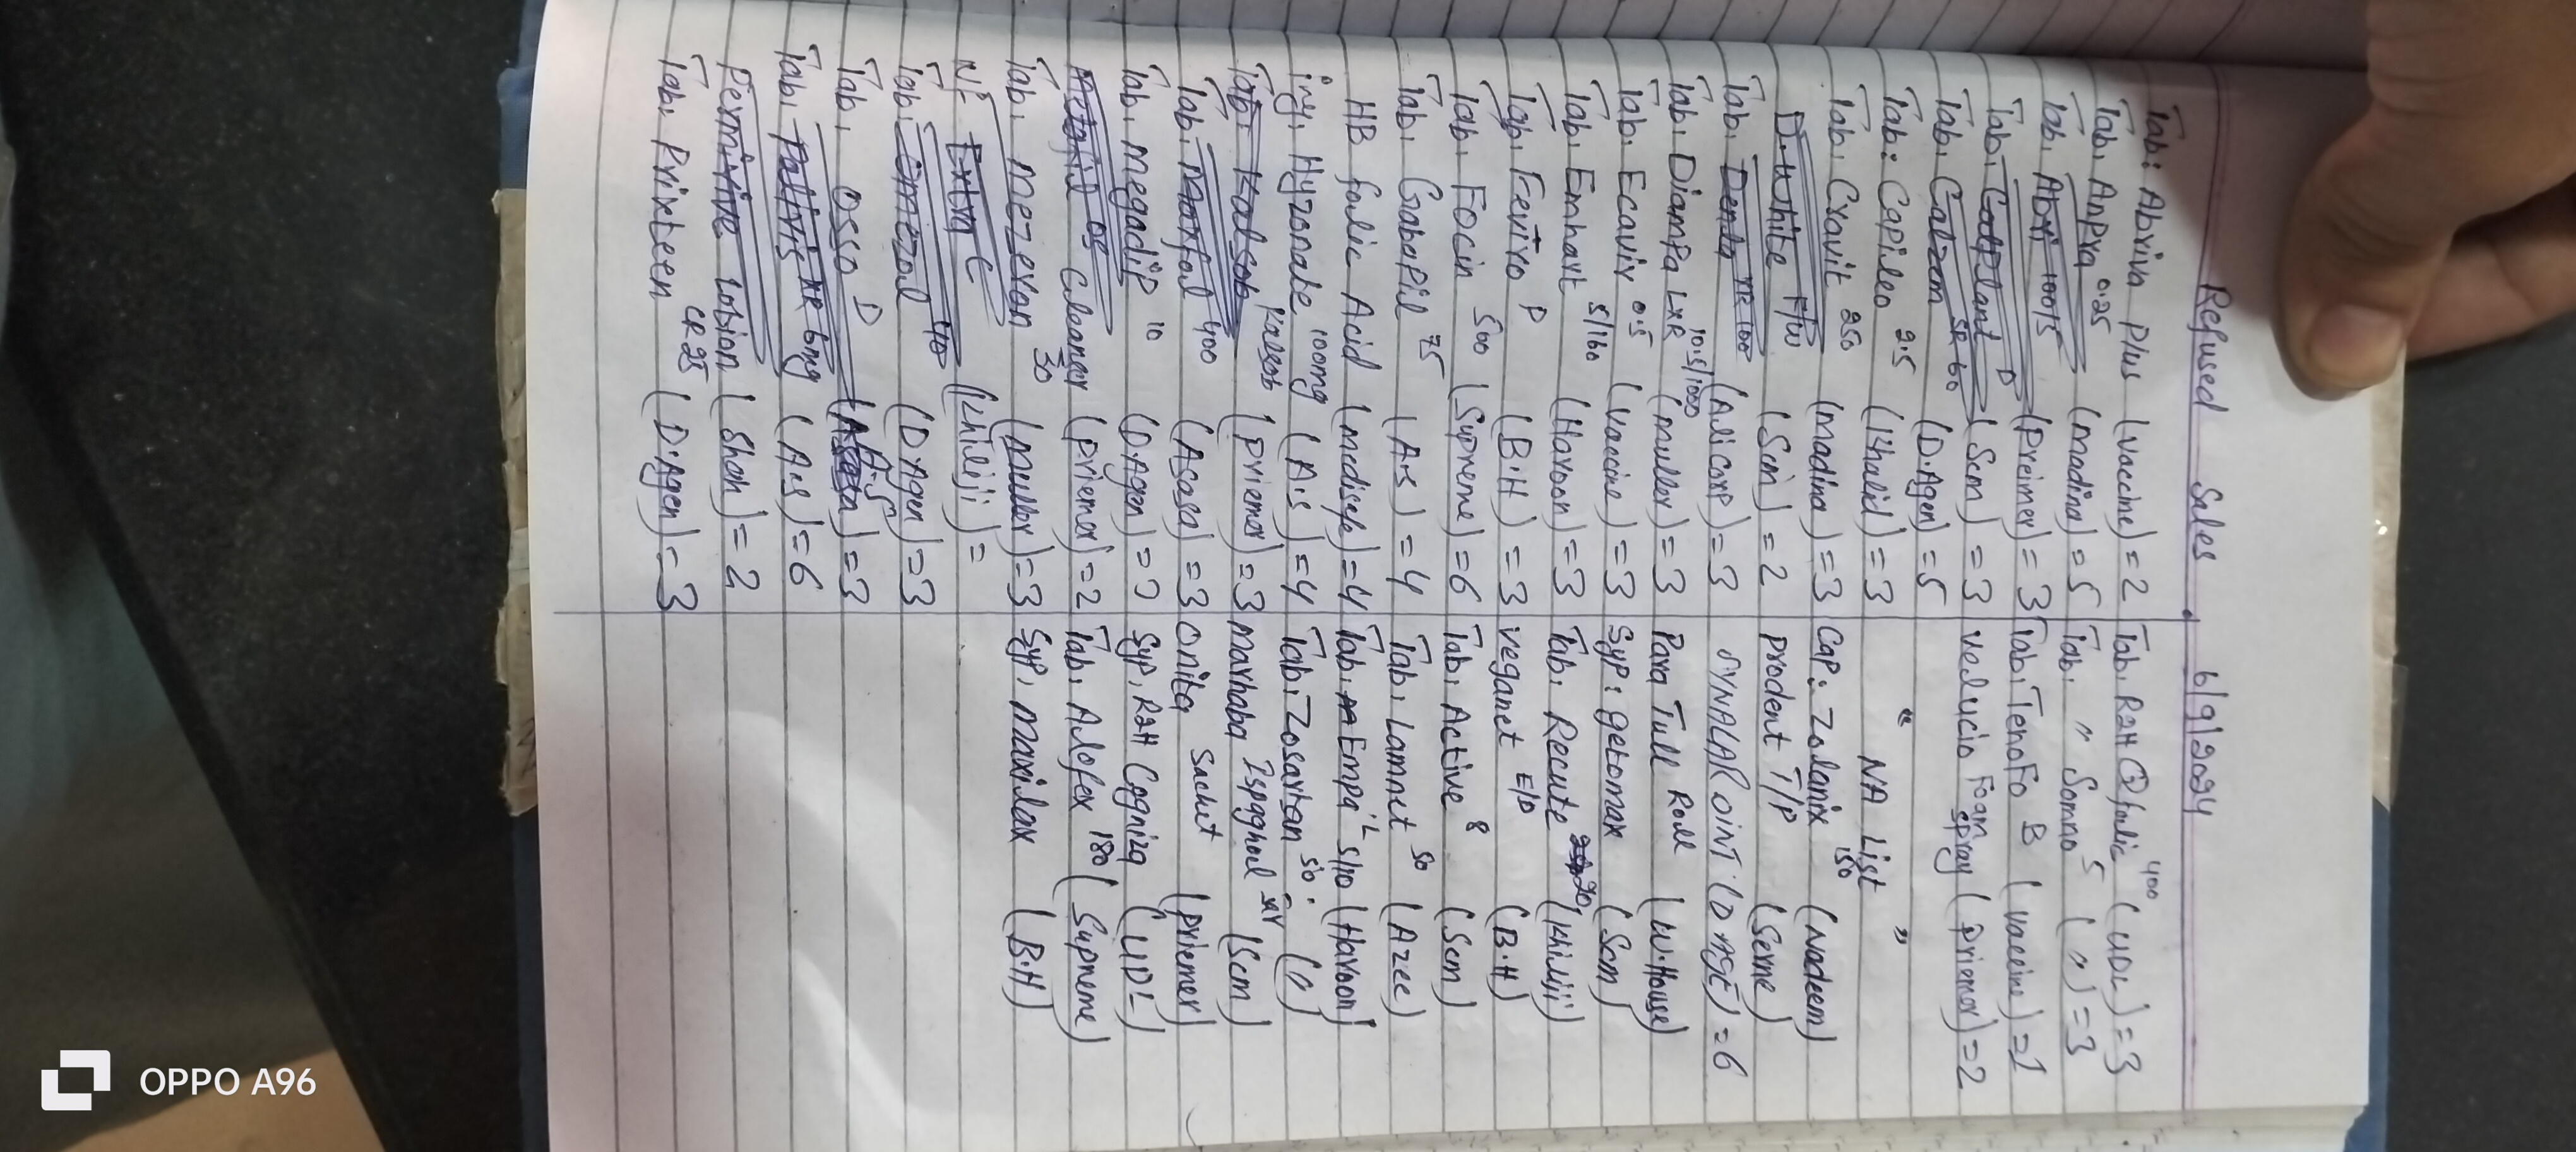 Refused Sales . 6/9/2024
Tab: Abriva Plus (vaccine) = 2
Tab. Anpra 0.25 (madina) = 5
Tab. Abxi 100/5 (Preimer) = 3
Tab. D (Scm) = 3
Tab. Calzem SR 60 (D.Agen) = 5
Tab: Capileo 2.5 (Khalid) = 3
Tab. Cravit 250 (madina) = 3
D.White F/W (Scm) = 2
Tab. XR 100 (Ali corp) = 3
Tab. Diampa LXR 10.5/1000 (muller) = 3
Tab. Ecaviv 0.5 (vaccine) = 3
Tab. Emhart 5/160 (Haroon) = 3
Tab. Fevitro P (B.H) = 3
Tab. Focin 500 (Supreme) = 6
Tab. Gabapil 75 (A.s) = 4
HB folic Acid (medisefe) = 4
inj. Hyzonate 100mg (A.s) = 4
Tab. Kalsob Kalsob (Priemer) = 3
Tab. Moxfal 400 (Asasa) = 3
Tab. megadip 10 (D.Agen) = 3
Cleanser (Priemer) = 2
Tab. mezevon 30 (muller) = 3
NF Extra C (Khiliji) =
Tab. Omezol 40 (D.Agen) = 3
Tab. Osso D (A.S) = 3
Tab. Paltvis XR 6mg (A.s) = 6
lotion (Shah) = 2
Tab. Prixteen CR 25 (D.Agen) = 3
Tab. R2H folic 400 (UDL) = 3
Tab. " Somno 5 ( " ) = 3
Tab. TenoFo B (vaccine) = 1
velucio Foam Spray (Priemer) = 2
" NA List "
Cap: Zolanix 150 (Nadeem)
Prodent T/P (Seme)
SYNALAR OINT (D AGE) = 6
Para Tull Roll (W.House)
Syp: getomax (Scm)
Tab. Recute 20 (Khiliji)
veganet E/D (B.H)
Tab. Active 8 (Scm)
Tab. Lamnet 50 (Azee)
Tab. Empa L 5/10 (Haroon)
Tab. Zosartan 50 (")
marhaba Ispaghol (Scm)
Onita Sachet (Priemer)
Syp. R2H Cogniza (UDL)
Tab. Alofex 180 (Supreme)
Syp. maxilax (B.H)
OPPO A96